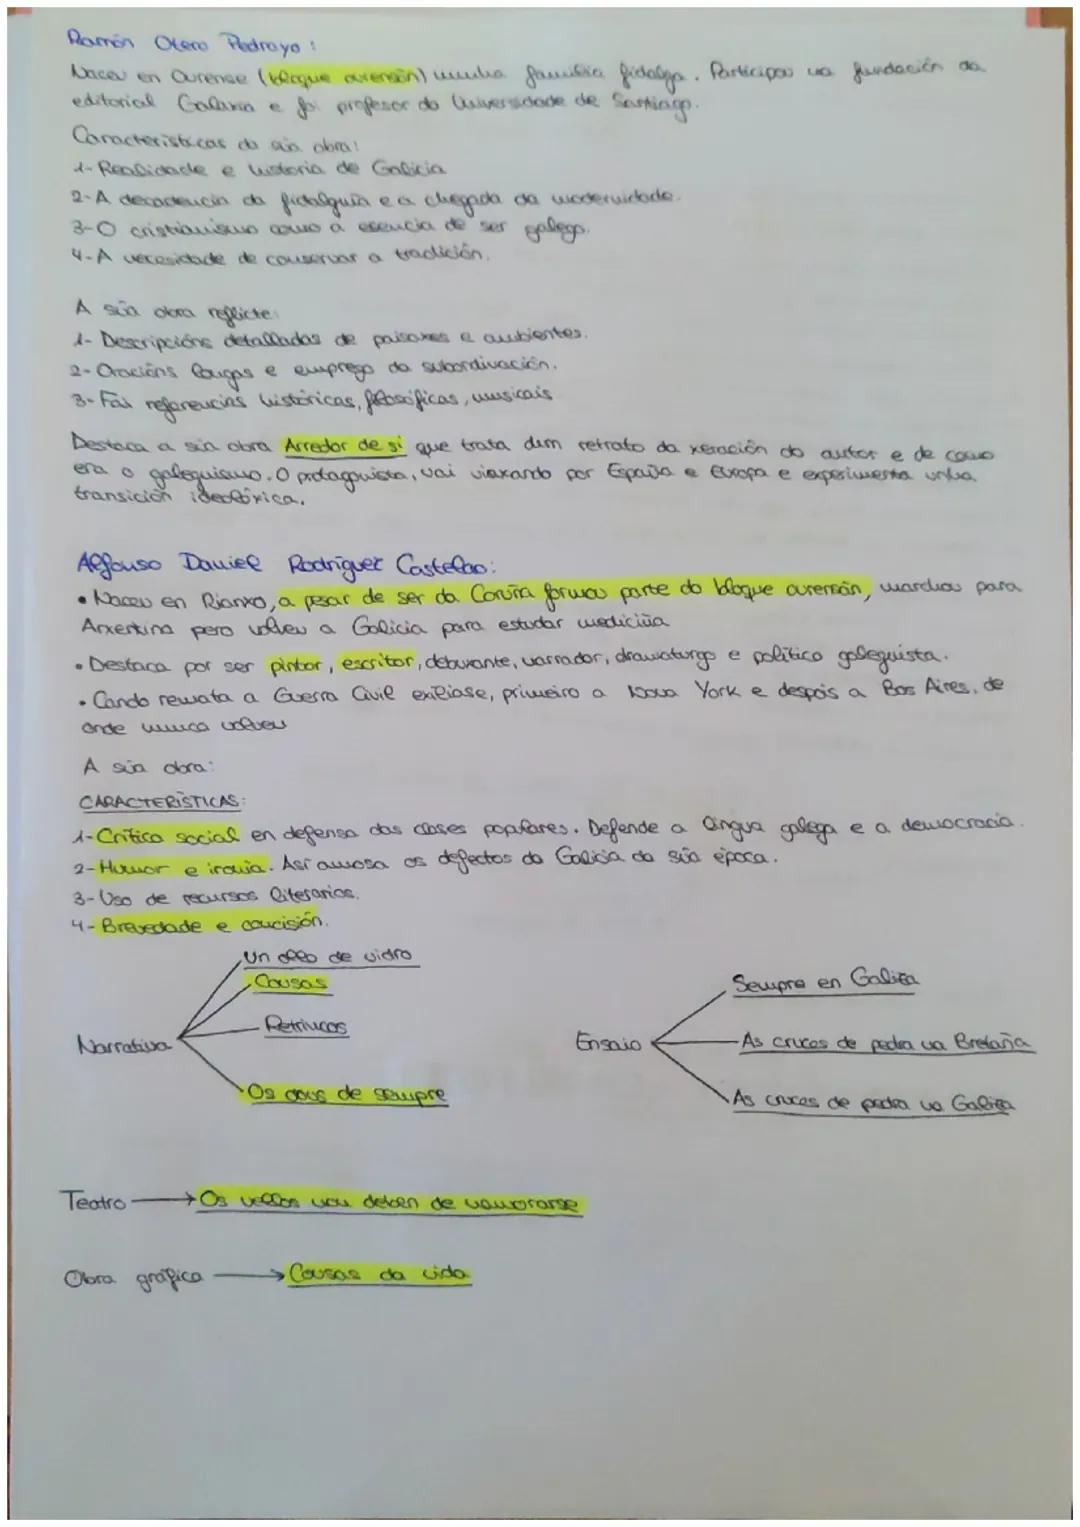 Ramón Otero Pedrayo:
Naceu en Ourense (bloque ourensán) nunha familia fidalga. Participou na fundación da
editorial Galaxia e foi profesor da Universidade de Santiago.
Características da súa obra:
1- Realidade e historia de Galicia
2- A decadencia da fidalguía e a chegada da modernidade.
3- O cristianismo como a esencia de ser galego.
4- A necesidade de conservar a tradición.
A súa obra reflicte:
1- Descripcións detalladas de paisaxes e ambientes.
2- Oracións longas e emprego da subordinación.
3- Fai referencias históricas, filosóficas, musicais
Destaca a súa obra Arredor de si que trata dun retrato da xeración do autor e de como
era o galeguismo. O protagonista, vai viaxando por España e Europa e experimenta unha
transición ideolóxica.
Alfonso Daniel Rodríguez Castelao:
• Naceu en Rianxo, a pesar de ser da Coruña formou parte do bloque ourensán, marchou para
Arxentina pero volveu a Galicia para estudar mediciña
• Destaca por ser pintor, escritor, debuxante, narrador, dramaturgo e político galeguista.
• Cando remata a Guerra Civil exíliase, primeiro a Nova York e despois a Bos Aires, de
onde nunca volveu
A súa obra:
CARACTERÍSTICAS:
1- Crítica social en defensa das clases populares. Defende a lingua galega e a democracia.
2- Humor e ironía. Así amosa os defectos da Galicia da súa época.
3- Uso de recursos literarios.
4- Brevedade e concisión.
Un ollo de vidro
Cousas
Retrincos
Narrativa
Os dous de sempre
Sempre en Galiza
Ensaio
As cruces de pedra na Bretaña
As cruces de pedra na Galiza
Teatro → Os vellos non deben de namorarse
Obra gráfica → Cousas da vida